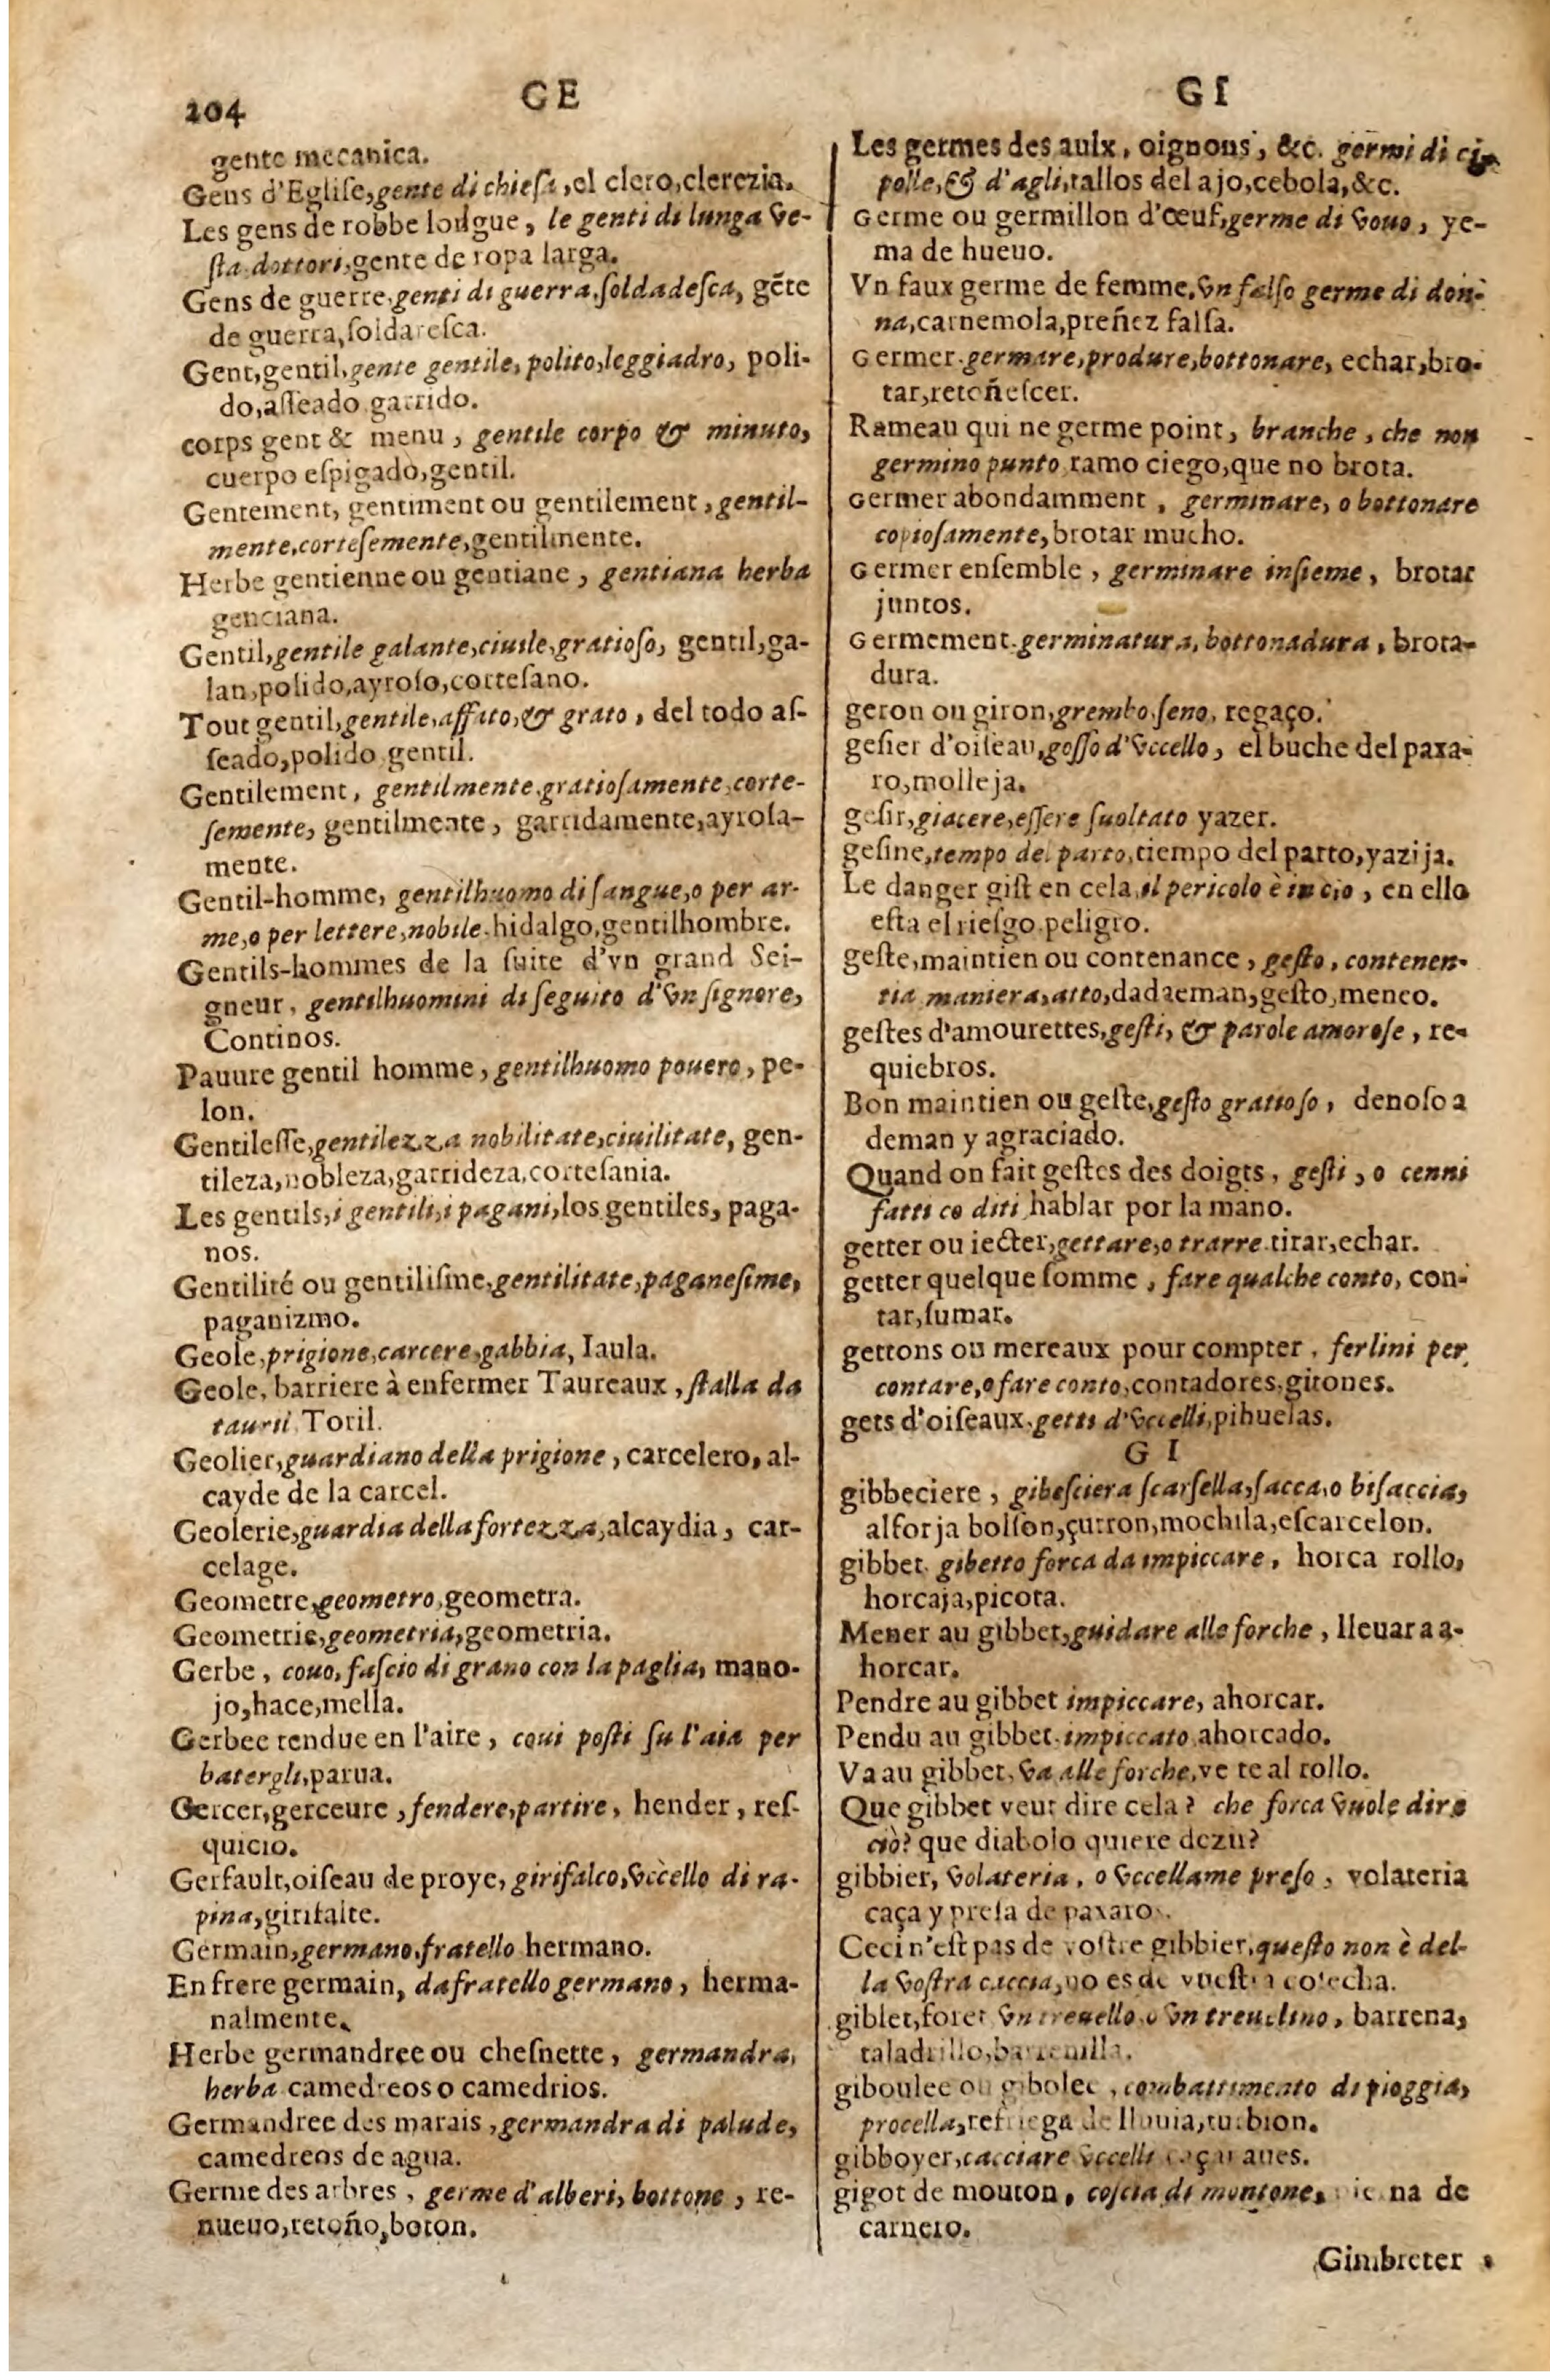 204
GE
GI
gente mecanica.
Gens d'Egliſe,gente di chieſa,el clero,clerezia.
Les gens de robbe longue, le genti di lunga ve-
ſta dottori,gente de ropa larga.
Gens de guerre,genti di guerra,ſoldadeſca, gẽte
de guerra,ſoldareſca.
Gent,gentil,gente gentile, polito,leggiadro, poli-
do,aſſeado garrido.
corps gent & menu, gentile corpo & minuto,
cuerpo eſpigado,gentil.
Gentement, gentiment ou gentilement,gentil-
mente,corteſemente,gentilmente.
Herbe gentienne ou gentiane, gentiana herba
genciana.
Gentil,gentile galante,ciuile,gratioſo, gentil,ga-
lan,polido,ayroſo,corteſano.
Tout gentil,gentile,affato,& grato, del todo aſ-
ſeado,polido gentil.
Gentilement, gentilmente,gratioſamente,corte-
ſemente, gentilmente, garridamente,ayroſa-
mente.
Gentil-homme, gentilhuomo di ſangue,o per ar-
me,o per lettere,nobile.hidalgo,gentilhombre.
Gentils-hommes de la ſuite d'vn grand Sei-
gneur, gentilhuomini di ſeguito d'vn ſignore,
Continos.
Pauure gentil homme, gentilhuomo pouero, pe-
lon.
Gentileſſe,gentilezza nobilitate,ciuilitate, gen-
tileza,nobleza,garrideza,corteſania.
Les gentils,i gentili,i pagani,los gentiles, paga-
nos.
Gentilité ou gentiliſme,gentilitate,paganeſime,
paganizmo.
Geole,prigione,carcere,gabbia, Iaula.
Geole, barriere à enfermer Taureaux, ſtalla da
taurii Toril.
Geolier,guardiano della prigione, carcelero, al-
cayde de la carcel.
Geolerie,guardia della fortezza,alcaydia, car-
celage.
Geometre,geometro,geometra.
Geometrie,geometria,geometria.
Gerbe, couo, faſcio di grano con la paglia, mano-
jo,hace,mella.
Gerbee tendue en l'aire, coui poſti ſu l'aia per
batergli,parua.
Gercer,gerceure,fendere,partire, hender, reſ-
quicio.
Gerfault,oiſeau de proye,girifalco,vccello di ra-
pina,girifalte.
Germain,germano,fratello hermano.
En frere germain, da fratello germano, herma-
nalmente.
Herbe germandree ou cheſnette, germandra,
herba camedreos o camedrios.
Germandree des marais,germandra di palude,
camedreos de agua.
Germe des arbres, germe d'alberi, bottone, re-
nueuo,retoño,boton.
Les germes des aulx, oignons, &c. germi di ci-
polle,& d'agli,tallos del ajo,cebola,&c.
Germe ou germillon d'œuf,germe di vouo, ye-
ma de hueuo.
Vn faux germe de femme,vn falſo germe di don-
na,carnemola,preñez falſa.
Germer.germare,produre,bottonare, echar,bro-
tar,retoñeſcer.
Rameau qui ne germe point, branche, che non
germino punto ramo ciego,que no brota.
Germer abondamment, germinare, o bottonare
copioſamente,brotar mucho.
Germer enſemble, germinare inſieme, brotar
juntos.
Germement.germinatura,bottonadura, brota-
dura.
geron ou giron,grembo,ſeno, regaço.
geſier d'oiſeau,goſſo d'vccello, el buche del paxa-
ro,molleja.
geſir,giacere,eſſere ſuoltato yazer.
geſine,tempo del parto,tiempo del parto,yazija.
Le danger giſt en cela,il pericolo è in ciò, en ello
eſta el rieſgo peligro.
geſte,maintien ou contenance, geſto, contenen-
tia maniera,atto,dadaeman,geſto,meneo.
geſtes d'amourettes,geſti, & parole amoroſe, re-
quiebros.
Bon maintien ou geſte,geſto gratioſo, denoſo a
deman y agraciado.
Quand on fait geſtes des doigts, geſti, o cenni
fatti co diti hablar por la mano.
getter ou iecter,gettare,o trarre tirar,echar.
getter quelque ſomme, fare qualche conto, con-
tar,ſumar.
gettons ou mereaux pour compter, ferlini per
contare,o fare conto,contadores,gitones.
gets d'oiſeaux.getti d'vccelli,pihuelas.
G I
gibbeciere, gibeſciera ſcarſella,ſacca,o biſaccia,
alforja bolſon,çurron,mochila,eſcarcelon.
gibbet. gibetto forca da impiccare, horca rollo,
horcaja,picota.
Mener au gibbet,guidare alle forche, lleuar a a-
horcar.
Pendre au gibbet impiccare, ahorcar.
Pendu au gibbet.impiccato ahorcado.
Va au gibbet,va alle forche,ve te al rollo.
Que gibbet veut dire cela? che forca vuole dire
ciò? que diabolo quiere dezir?
gibbier, volateria, o vccellame preſo, volateria
caça y preſa de paxaros.
Ceci n'eſt pas de voſtre gibbier,queſto non è del-
la voſtra caccia,no es de vueſtra coſecha.
giblet,foret vn treuello o vn treuelino, barrena,
taladrillo,barrenilla.
giboulee ou gibolee, combattimento di pioggia,
procella,refriega de lluuia,turbion.
gibboyer,cacciare vccelli caçar aues.
gigot de mouton, coſcia di montone, pierna de
carnero.
Gimbreter